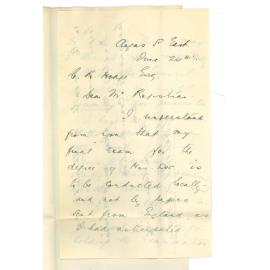 Argus St East
June 24th
C. R. Hodge Esq
Dear Mr Registrar
I understand
from you that my
final exam for the
degree of Mus Doc is
to be conducted locally
and not by papers
sent from England as
I had anticipated